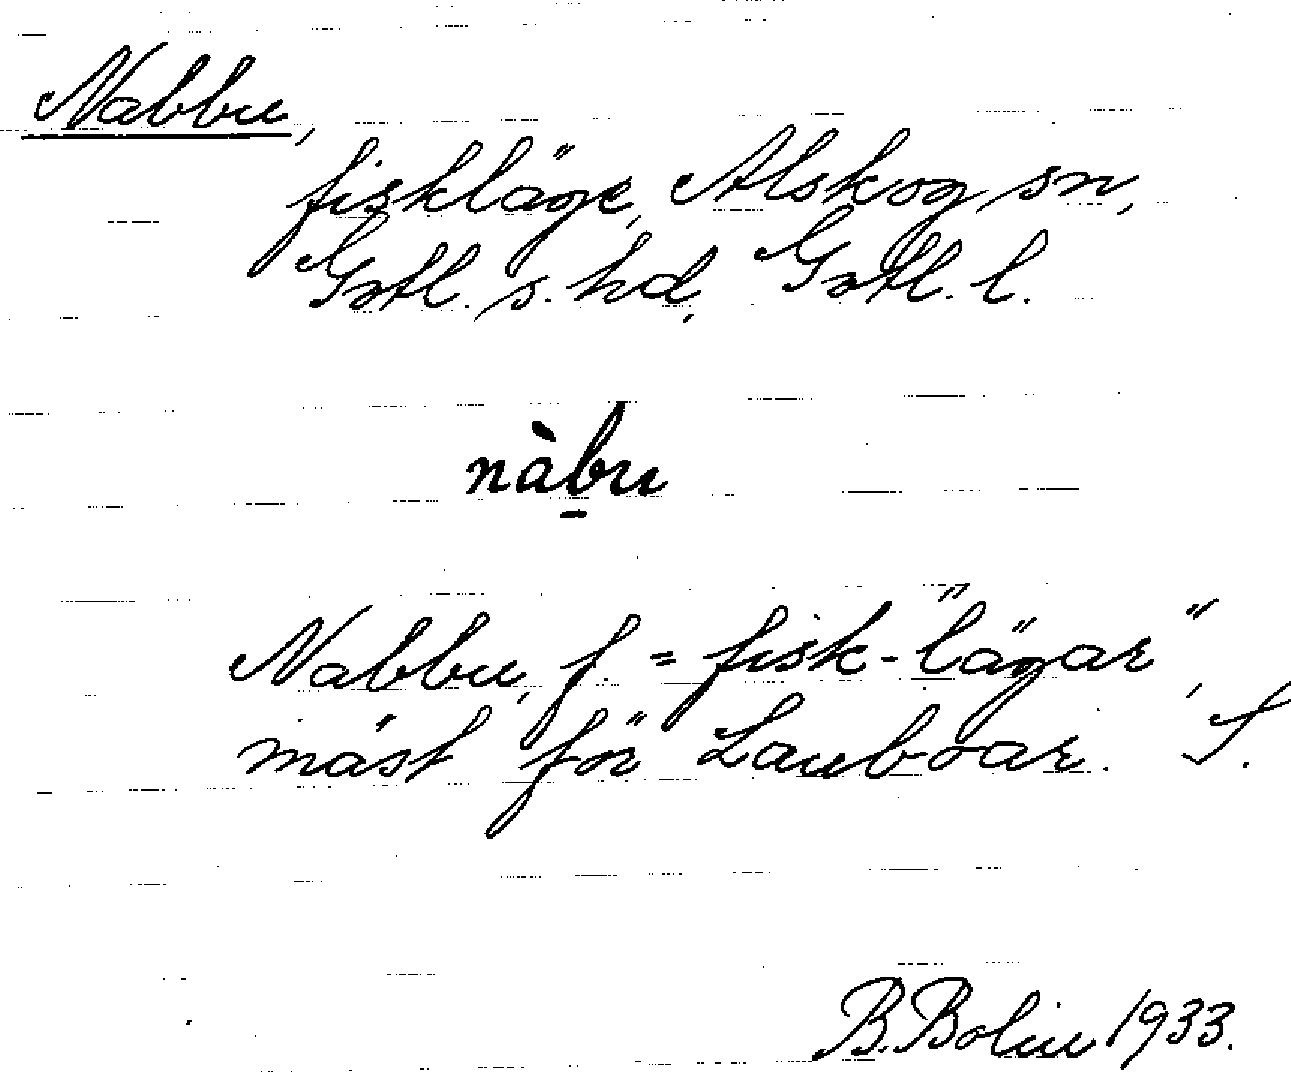 Nabbu,
fiskläge, Alskog sn,
Gotl. s. hd, Gotl. l.
nàb̠u
Nabbu, f. = fisk-"lägar",
mäst för Lauboar. S.
B. Bolin 1933.